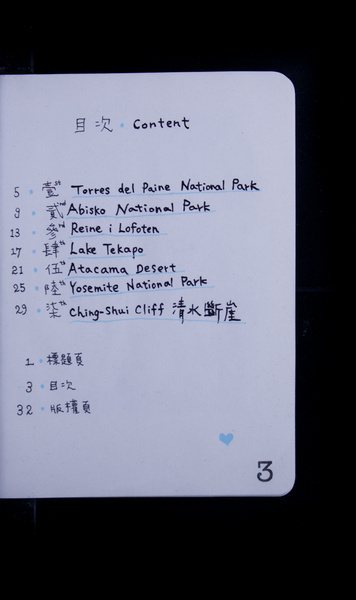 目次 · Content
5 · 壹st Torres del Paine National Park
9 · 貳nd Abisko National Park
13 · 參rd Reine i Lofoten
17 · 肆th Lake Tekapo
21 · 伍th Atacama Desert
25 · 陸th Yosemite National Park
29 · 柒th Ching-Shui Cliff 清水斷崖
1 · 標題頁
3 · 目次
32 · 版權頁
3